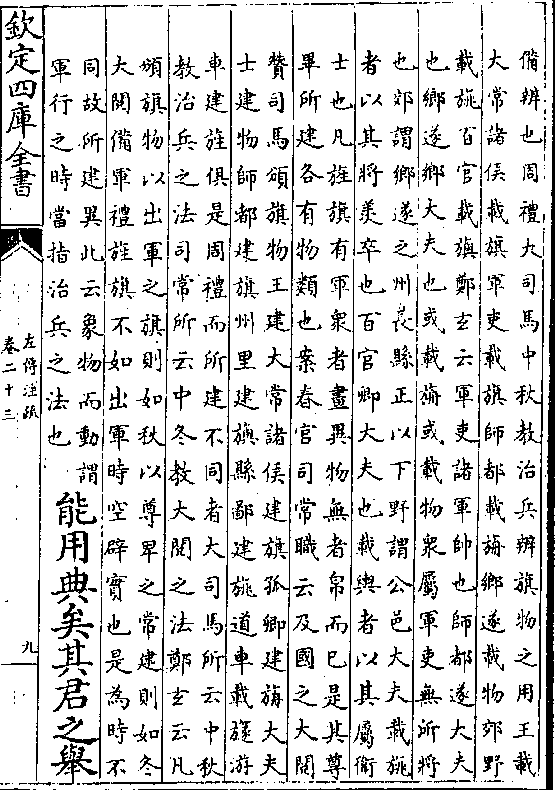 備辨也周禮大司馬中秋教治兵辨旗物之用王載
大常諸侯載旗軍吏載旗師都載旜鄉遂載物郊野
載旐百官載旟鄭玄云軍吏諸軍帥也師都遂大夫
也鄉遂鄉大夫也或載旜或載物衆屬軍吏無所將
也郊謂鄉遂之州長縣正以下野謂公邑大夫載旐
者以其將羨卒也百官卿大夫也載旟者以其屬衛
士也凡旌旗有軍衆者畫異物無者帛而已是其尊
畢所建各有物類也案春官司常職云及國之大閱
贊司馬頒旗物王建大常諸侯建旗孤卿建旜大夫
士建物師都建旗州里建旟縣鄙建旐道車載旞游
車建旌俱是周禮而所建不同者大司馬所云中秋
教治兵之法司常所云中冬教大閱之法鄭玄云凡
頒旗物以出軍之旗則如秋以尊卑之常建則如冬
大閱備軍禮旌旗不如出軍時空辟實也是為時不
同故所建異此云象物而動謂
軍行之時當指治兵之法也 能用典矣其君之舉
欽定四庫全書
左傳注疏
卷二十三
九